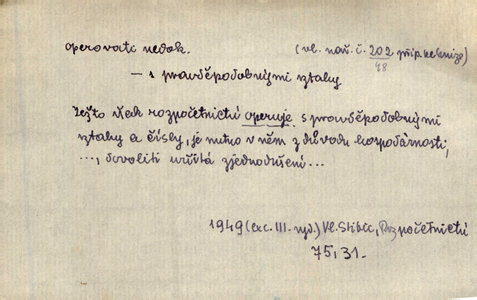 operovati nedok. (vl. nař. č. 202/48 příp. ke knize)
— s pravděpodobnými vztahy
Ježto však rozpočetnictví operuje s pravděpodobnými
vztahy a čísly, je nutno v něm z důvodu hospodárnosti,
..., dovoliti určitá zjednodušení...
1949 (exc. III. vyd.) Vl. Stibic, Rozpočetnictví
75, 31.